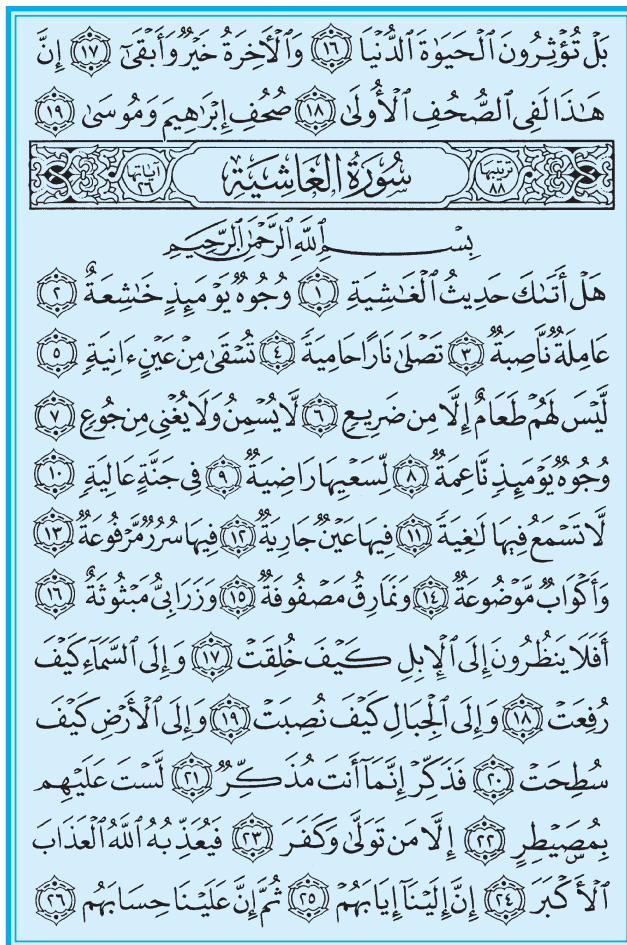 بَلْ تُؤْثِرُونَ ٱلْحَيَوٰةَ ٱلدُّنْيَا ١٦ وَٱلْأَخِرَةُ خَيْرٌ وَأَبْقَىٰٓ ١٧ إِنَّ
هَـٰذَا لَفِى ٱلصُّحُفِ ٱلْأُولَىٰ ١٨ صُحُفِ إِبْرَٰهِيمَ وَمُوسَىٰ ١٩
ترتيبها ٨٨ سُورَةُ الغَاشِيَةِ آياتها ٢٦
بِسْمِ ٱللَّهِ ٱلرَّحْمَـٰنِ ٱلرَّحِيمِ
هَلْ أَتَىٰكَ حَدِيثُ ٱلْغَـٰشِيَةِ ١ وُجُوهٌ يَوْمَئِذٍ خَـٰشِعَةٌ ٢
عَامِلَةٌ نَّاصِبَةٌ ٣ تَصْلَىٰ نَارًا حَامِيَةً ٤ تُسْقَىٰ مِنْ عَيْنٍ ءَانِيَةٍ ٥
لَّيْسَ لَهُمْ طَعَامٌ إِلَّا مِن ضَرِيعٍ ٦ لَّا يُسْمِنُ وَلَا يُغْنِى مِن جُوعٍ ٧
وُجُوهٌ يَوْمَئِذٍ نَّاعِمَةٌ ٨ لِّسَعْيِهَا رَاضِيَةٌ ٩ فِى جَنَّةٍ عَالِيَةٍ ١٠
لَّا تَسْمَعُ فِيهَا لَـٰغِيَةً ١١ فِيهَا عَيْنٌ جَارِيَةٌ ١٢ فِيهَا سُرُرٌ مَّرْفُوعَةٌ ١٣
وَأَكْوَابٌ مَّوْضُوعَةٌ ١٤ وَنَمَارِقُ مَصْفُوفَةٌ ١٥ وَزَرَابِىُّ مَبْثُوثَةٌ ١٦
أَفَلَا يَنظُرُونَ إِلَى ٱلْإِبِلِ كَيْفَ خُلِقَتْ ١٧ وَإِلَى ٱلسَّمَآءِ كَيْفَ
رُفِعَتْ ١٨ وَإِلَى ٱلْجِبَالِ كَيْفَ نُصِبَتْ ١٩ وَإِلَى ٱلْأَرْضِ كَيْفَ
سُطِحَتْ ٢٠ فَذَكِّرْ إِنَّمَآ أَنتَ مُذَكِّرٌ ٢١ لَّسْتَ عَلَيْهِم
بِمُصَۜيْطِرٍ ٢٢ إِلَّا مَن تَوَلَّىٰ وَكَفَرَ ٢٣ فَيُعَذِّبُهُ ٱللَّهُ ٱلْعَذَابَ
ٱلْأَكْبَرَ ٢٤ إِنَّ إِلَيْنَآ إِيَابَهُمْ ٢٥ ثُمَّ إِنَّ عَلَيْنَا حِسَابَهُم ٢٦